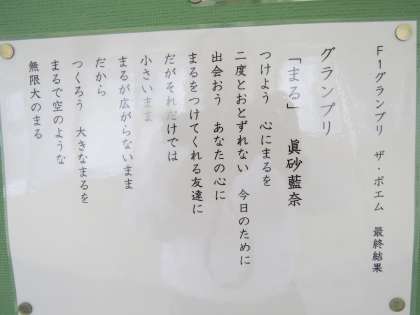 F1グランプリ　ザ・ポエム　最終結果
グランプリ
「まる」　眞砂藍奈
つけよう　心にまるを
二度とおとずれない　今日のために
出会おう　あなたの心に
まるをつけてくれる友達に
だがそれだけでは
小さいまま
まるが広がらないまま
だから
つくろう　大きなまるを
まるで空のような
無限大のまる